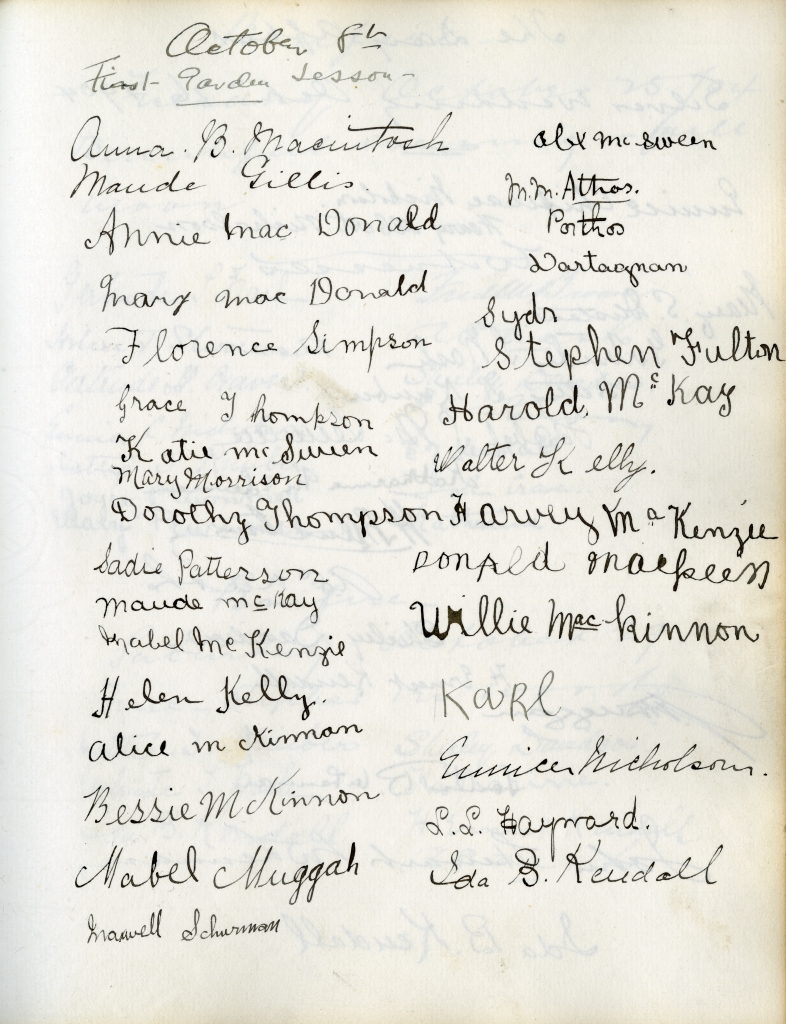 October 8th
First Garden Lesson -
Anna. B. Macintosh
Maude Gillis.
Annie Mac Donald
Mary Mac Donald
Florence Simpson
Grace Thompson
Katie McSween
Mary Morrison
Dorothy Thompson
Sadie Patterson
Maude McKay
Mabel McKenzie
Helen Kelly.
Alice McKinnon
Bessie McKinnon
Mabel Muggah
Maxwell Schurman
Alex McSween
M.M. Athos.
Porthos
Dartagnan
Stephen Fulton
Harold. McKay
Walter Kelly.
Harvey McKenzie
Donald MacKeen
Willie MacKinnon
Karl
Eunice Nicholson.
L.L. Hayward.
Ida B. Kendall